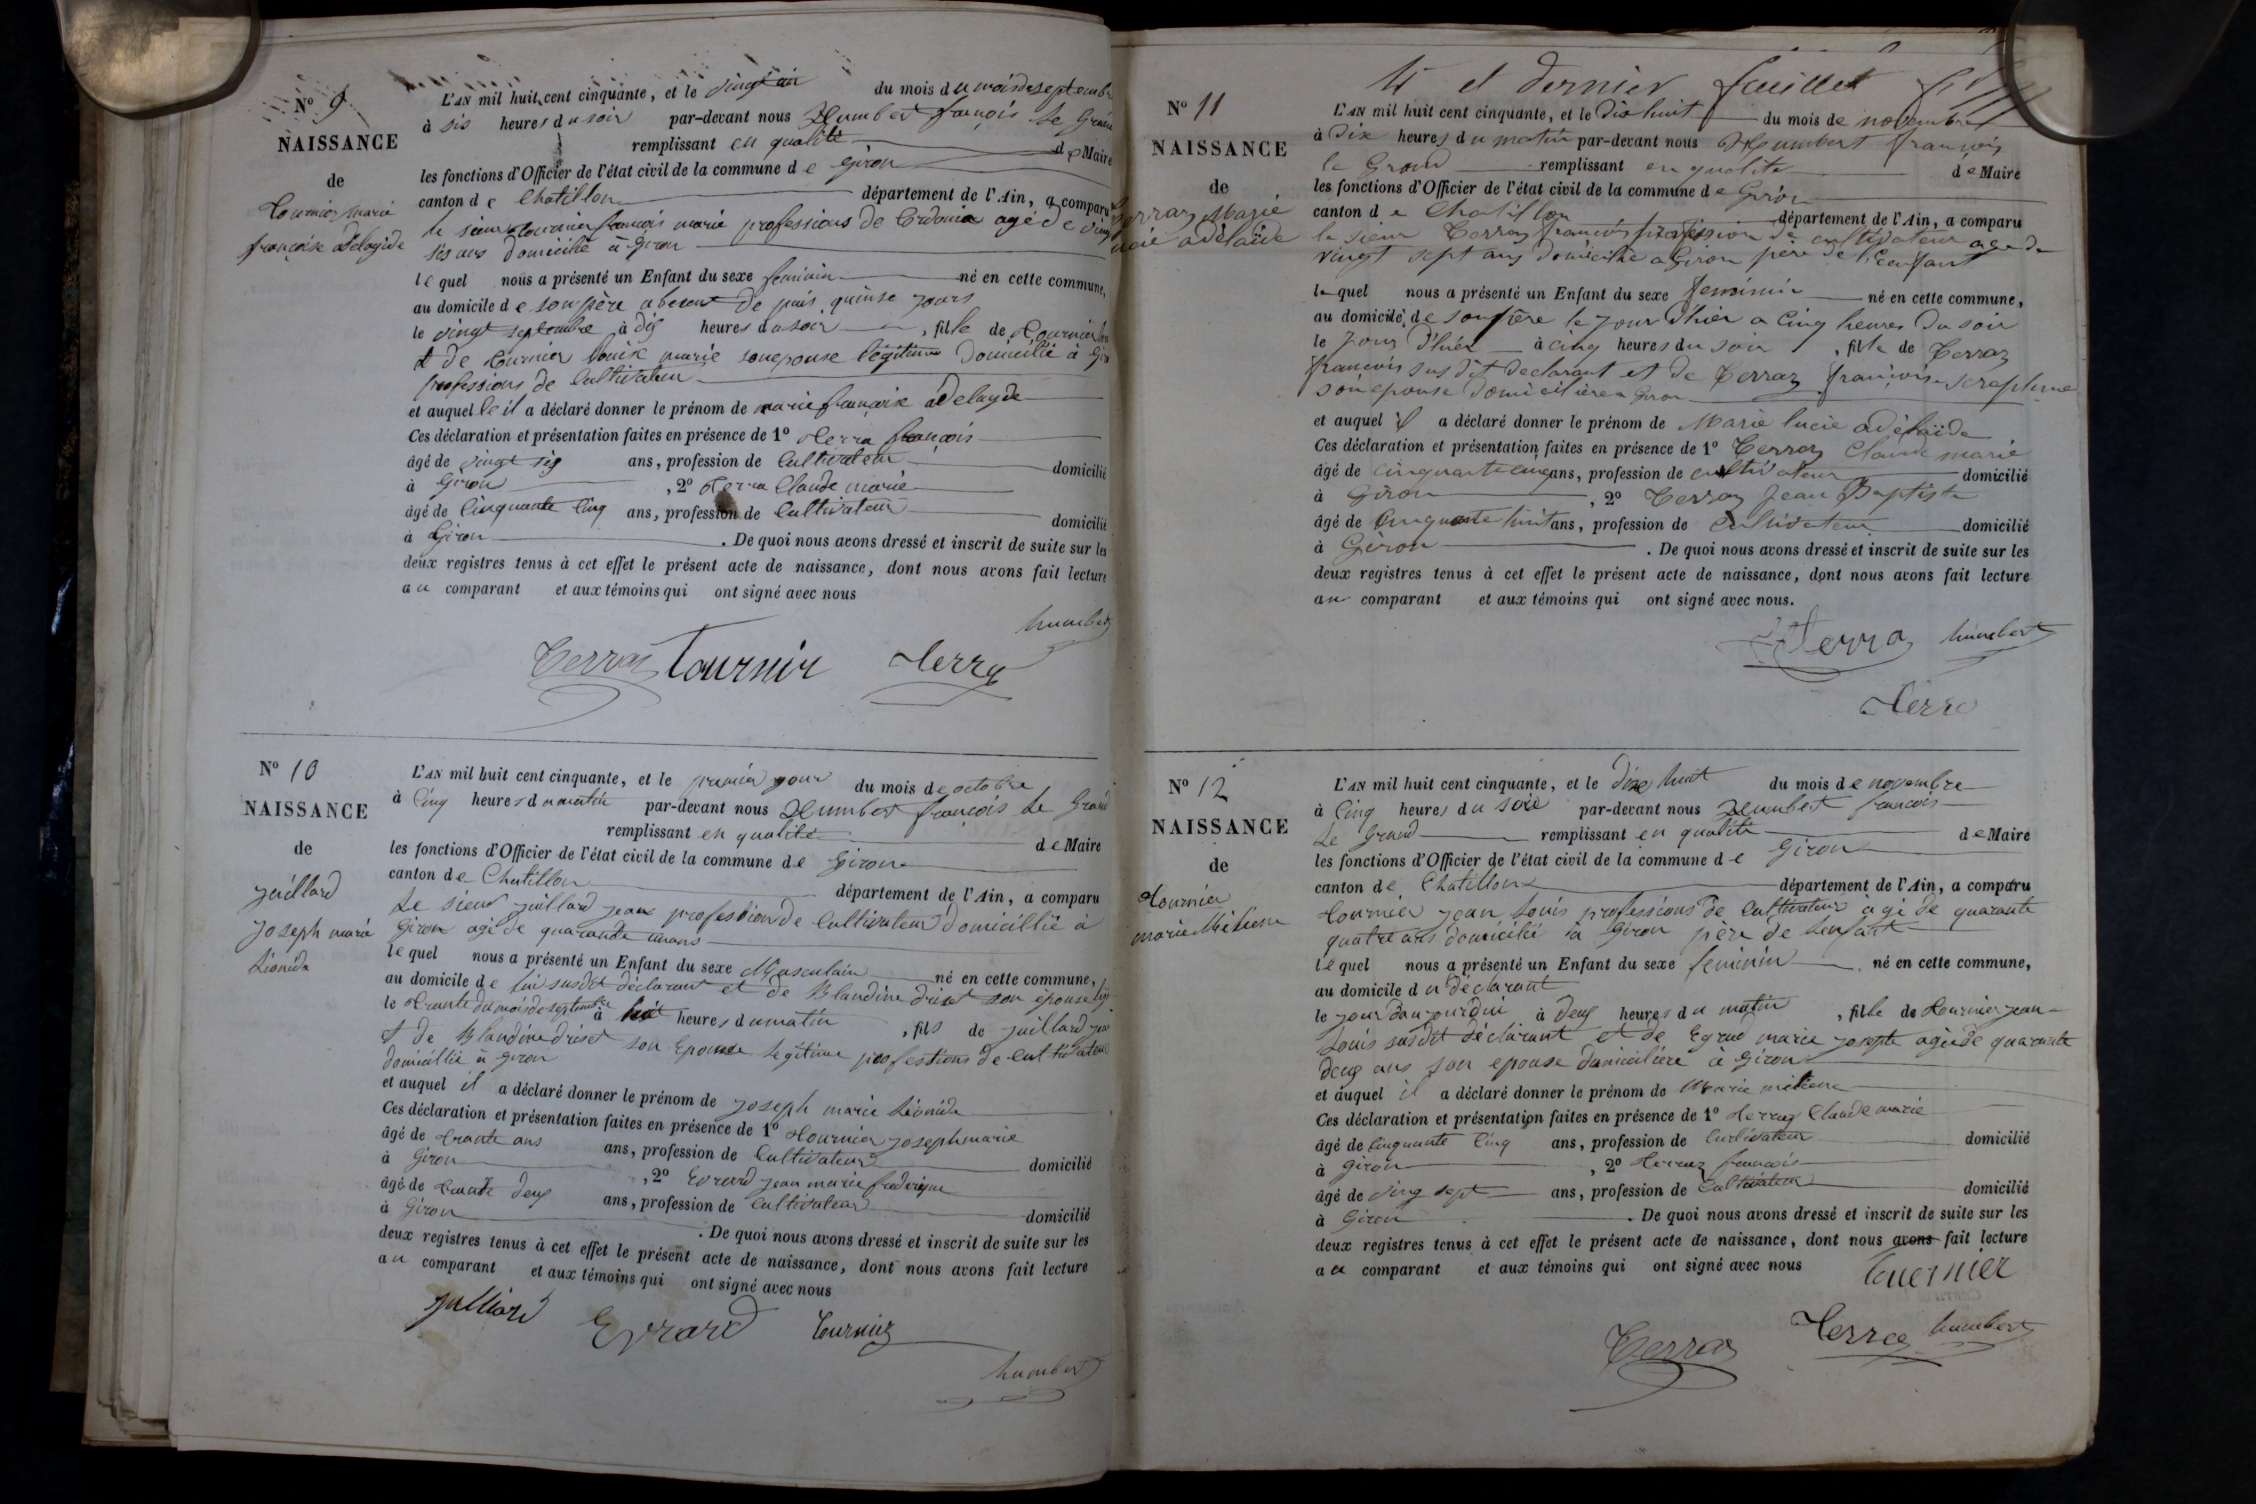 N° 9
NAISSANCE
de
tournier marie
françoise adelayde
L'AN mil huit cent cinquante, et le vingt un du mois du mois de septembre
à sis heures du soir par-devant nous humbert françois Le Grand
remplissant en qualité de Maire
les fonctions d'Officier de l'état civil de la commune de Giron
canton de Chatillon département de l'Ain, a comparu
le sieur tournier françois marie professions de agé de vingt
sis ans domicilié à Giron
lequel nous a présenté un Enfant du sexe feminin né en cette commune,
au domicile de son père absent de puis quinse jours
le vingt septembre à dis heures du soir, fille de tournier
et de tournier louise marie son epouse légitime domicilié à Giron
professions de Cultivateur
et auquelle il a déclaré donner le prénom de marie françoise adelayde
Ces déclaration et présentation faites en présence de 1° terra françois
âgé de vingt sis ans, profession de Cultivateur domicilié
à Giron, 2° terra Claude marie
âgé de Cinquante Cinq ans, profession de Cultivateur domicilié
à Giron. De quoi nous avons dressé et inscrit de suite sur les
deux registres tenus à cet effet le présent acte de naissance, dont nous avons fait lecture
au comparant et aux témoins qui ont signé avec nous
humbert
Terraz Tournir terra
N° 10
NAISSANCE
de
juillard
joseph marie
Léonida
L'AN mil huit cent cinquante, et le premier jour du mois de octobre
à Cinq heures du matin par-devant nous humbert françois Le Grand
remplissant en qualité de Maire
les fonctions d'Officier de l'état civil de la commune de Giron
canton de Chatillon département de l'Ain, a comparu
Le sieur juillard jean professions de Cultivateur domicillié à
Giron agé de quarante ans
lequel nous a présenté un Enfant du sexe Masculain né en cette commune,
au domicile de lui susdit déclarant et de Blandine driset son épouse
le trante du mois de septembre à huit heures du matin, fils de juillard jean
et de Blandine driset son Epouse legitime professions de cultivateur
domicillié à giron
et auquel il a déclaré donner le prénom de joseph marie Léonida
Ces déclaration et présentation faites en présence de 1° tournier joseph marie
âgé de trante ans ans, profession de Cultivateur domicilié
à Giron, 2° Evrard jean marie frederique
âgé de trante deus ans, profession de Cultivateur domicilié
à Giron. De quoi nous avons dressé et inscrit de suite sur les
deux registres tenus à cet effet le présent acte de naissance, dont nous avons fait lecture
au comparant et aux témoins qui ont signé avec nous
julliard Evrard tournier
humbert
4 et dernier feuillet
N° 11
NAISSANCE
de
Terraz Marie
lucie adélaïde
L'AN mil huit cent cinquante, et le Dix huit du mois de novembre
à Dix heures du matin par-devant nous Humbert françois
le Grand remplissant en qualité de Maire
les fonctions d'Officier de l'état civil de la commune de Giron
canton de Chatillon département de l'Ain, a comparu
le sieur Terraz françois profession de cultivateur age de
vingt sept ans domicilié a Giron père de l'enfant
lequel nous a présenté un Enfant du sexe feminin né en cette commune,
au domicile de son père le jour d'hier a cinq heures du soir
le jour d'hier à cinq heures du soir, fille de Terraz
françois sus dit declarant et de Terraz françoise seraphine
son epouse domicilière a Giron
et auquel il a déclaré donner le prénom de Marie lucie adélaïde
Ces déclaration et présentation faites en présence de 1° Terraz Claude marie
âgé de cinquante cinq ans, profession de cultivateur domicilié
à Giron, 2° Terraz Jean Baptiste
âgé de Cinquante huit ans, profession de cultivateur domicilié
à Giron. De quoi nous avons dressé et inscrit de suite sur les
deux registres tenus à cet effet le présent acte de naissance, dont nous avons fait lecture
au comparant et aux témoins qui ont signé avec nous.
terra humbert
terra
N° 12
NAISSANCE
de
tournier
marie Méliene
L'AN mil huit cent cinquante, et le dix huit du mois de novembre
à Cinq heures du soir par-devant nous humbert françois
Le Grand remplissant en qualité de Maire
les fonctions d'Officier de l'état civil de la commune de Giron
canton de Chatillon département de l'Ain, a comparu
tournier jean Louis professions de Cultivateur agé de quarante
quatre ans domicilié à Giron père de l'enfant
lequel nous a présenté un Enfant du sexe feminin né en cette commune,
au domicile du déclarant
le jour daujourdui à deus heures du matin, fille de tournier jean
Louis susdit déclarant et de Egrud marie josepte agée de quarante
deus ans son epouse domicilière à Giron
et auquel il a déclaré donner le prénom de Marie méliene
Ces déclaration et présentation faites en présence de 1° terraz Claude marie
âgé de Cinquante Cinq ans, profession de Cultivateur domicilié
à giron, 2° terraz françois
âgé de ving sept ans, profession de Cultivateur domicilié
à Giron. De quoi nous avons dressé et inscrit de suite sur les
deux registres tenus à cet effet le présent acte de naissance, dont nous avons fait lecture
au comparant et aux témoins qui ont signé avec nous
tuernier
Terraz terra humbert